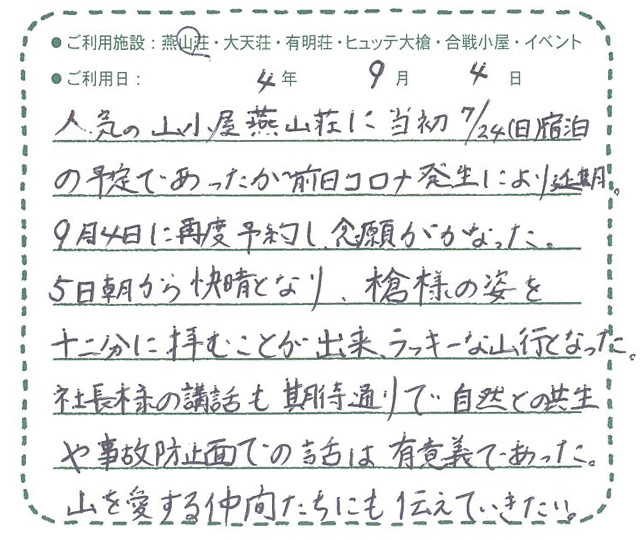 ●ご利用施設：燕山荘・大天荘・有明荘・ヒュッテ大槍・合戦小屋・イベント
●ご利用日： 4年 9月 4日
人気の山小屋燕山荘に当初7/24(日)宿泊
の予定であったが前日コロナ発生により延期。
9月4日に再度予約し、念願がかなった。
5日朝から快晴となり、槍様の姿を
十二分に拝むことが出来、ラッキーな山行となった。
社長様の講話も期待通りで自然との共生
や事故防止面での話は有意義であった。
山を愛する仲間たちにも伝えていきたい。